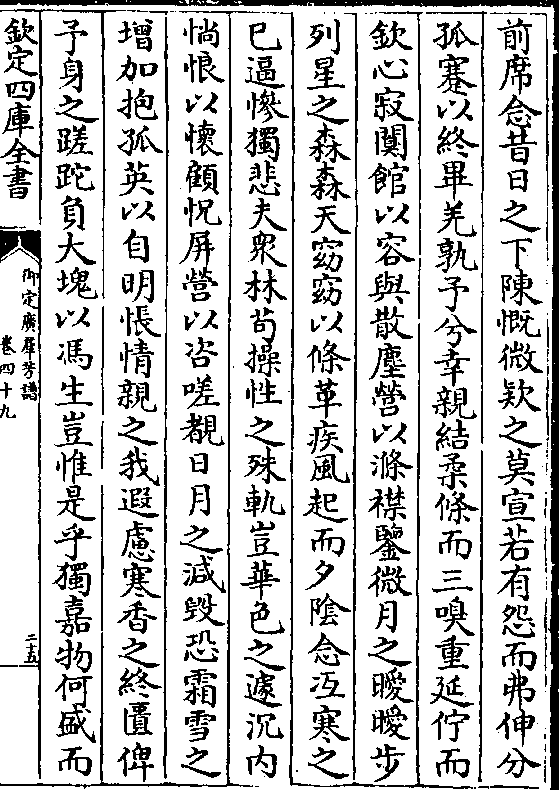 前席念昔日之下陳慨微欵之莫宣若有怨而弗伸分
孤蹇以終畢羌孰予兮幸親結柔條而三嗅重延佇而
欽心寂闃館以容與散塵營以滌襟鑒微月之曖曖步
列星之森森天窈窈以條革疾風起而夕陰念冱寒之
已逼慘獨悲夫衆林苟操性之殊軌豈華色之遽沉内
惝悢以懷顧怳屏營以咨嗟覩日月之減毁恐霜雪之
增加抱孤英以自明悵情親之我遐慮寒香之終匱俾
予身之蹉跎負大塊以馮生豈惟是乎獨嘉物何盛而
欽定四庫全書
御定廣羣芳譜
卷四十九
二五